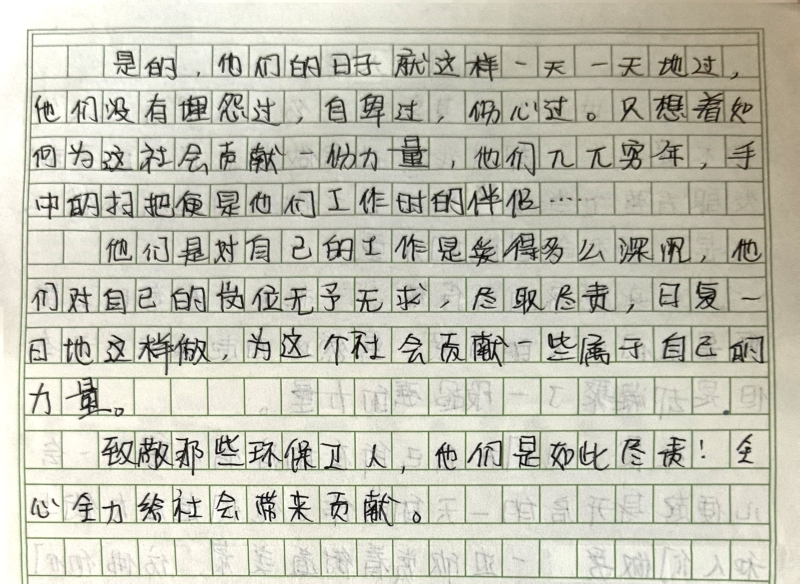 是的，他们的日子就这样一天一天地过，
他们没有埋怨过，自卑过，伤心过。只想着如
何为这社会贡献一份力量，他们兀兀穷年，手
中的扫把便是他们工作时的伴侣……
他们是对自己的工作是爱得多么深沉，他
们对自己的岗位无予无求，尽取尽责，日复一
日地这样做，为这个社会贡献一些属于自己的
力量。
致敬那些环保卫人，他们是如此尽责！全
心全力给社会带来贡献。